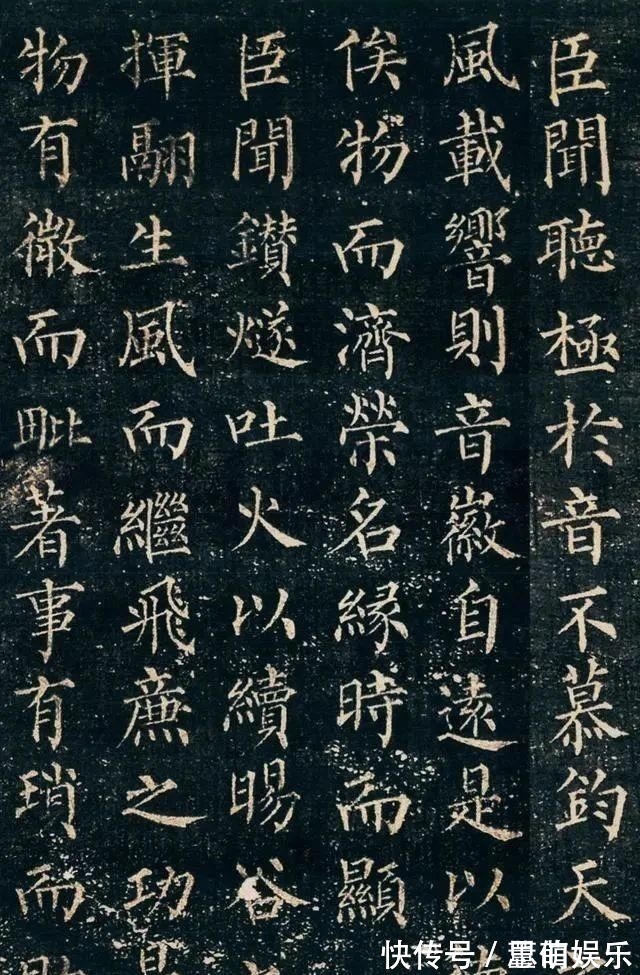 臣聞聴極於音不慕鈞天
風載響則音徽自遠是以
俟物而濟榮名緣時而顯
臣聞鑚燧吐火以續暘谷
揮翮生風而繼飛廉之功
物有微而毗著事有瑣而
快传号／墨萌娱乐